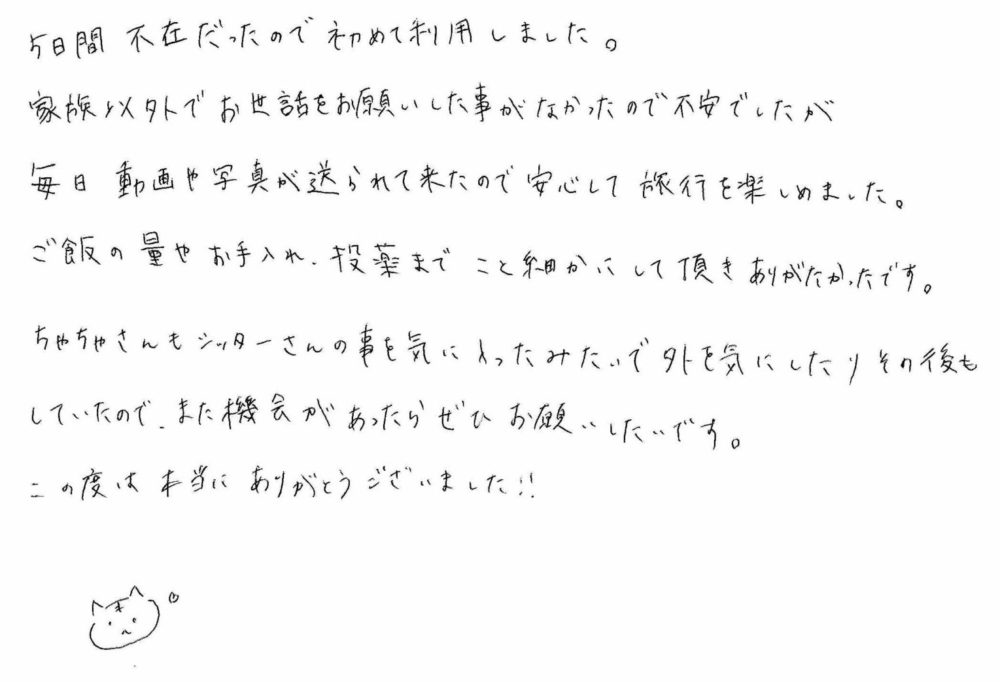 5日間 不在だったので 初めて利用しました。
家族以外でお世話をお願いした事がなかったので不安でしたが
毎日 動画や写真が送られて来たので安心して旅行を楽しめました。
ご飯の量やお手入れ、投薬まで こと細かにして頂きありがたかったです。
ちゃちゃさんもシッターさんの事を気に入ったみたいで外を気にしたりその後も
していたので、また機会があったらぜひお願いしたいです。
この度は本当にありがとうございました!!